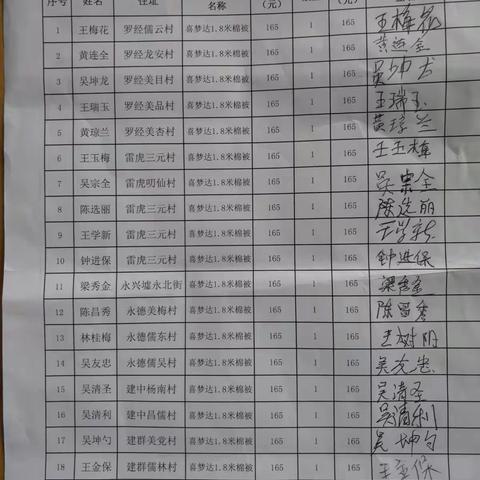 序号 姓名 住址 名称 （元） （元）
1 王梅花 罗经儒云村 喜梦达1.8米棉被 165 1 165 王梅花
2 黄连全 罗经龙安村 喜梦达1.8米棉被 165 1 165 黄连全
3 吴坤龙 罗经美目村 喜梦达1.8米棉被 165 1 165 吴坤龙
4 王瑞玉 罗经美品村 喜梦达1.8米棉被 165 1 165 王瑞玉
5 黄琼兰 罗经美杏村 喜梦达1.8米棉被 165 1 165 黄琼兰
6 王玉梅 雷虎三元村 喜梦达1.8米棉被 165 1 165 王玉梅
7 吴宗全 雷虎明仙村 喜梦达1.8米棉被 165 1 165 吴宗全
8 陈选丽 雷虎三元村 喜梦达1.8米棉被 165 1 165 陈选丽
9 王学新 雷虎三元村 喜梦达1.8米棉被 165 1 165 王学新
10 钟进保 雷虎三元村 喜梦达1.8米棉被 165 1 165 钟进保
11 梁秀金 永兴墟永北街 喜梦达1.8米棉被 165 1 165 梁秀金
12 陈昌秀 永德美梅村 喜梦达1.8米棉被 165 1 165 陈昌秀
13 林桂梅 永德儒东村 喜梦达1.8米棉被 165 1 165 王树阳
14 吴友忠 永德儒吴村 喜梦达1.8米棉被 165 1 165 吴友忠
15 吴清圣 建中杨南村 喜梦达1.8米棉被 165 1 165 吴清圣
16 吴清利 建中昌儒村 喜梦达1.8米棉被 165 1 165 吴清利
17 吴坤勺 建群美党村 喜梦达1.8米棉被 165 1 165 吴坤勺
18 王金保 建群儒林村 喜梦达1.8米棉被 165 1 165 王金保